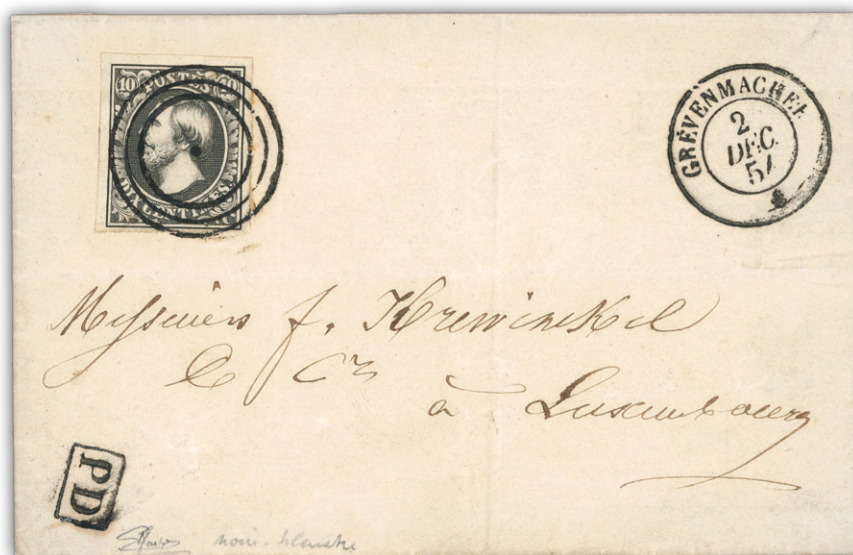 10 POSTES 10
DIX CENTIMES
GREVENMACHER
2
DEC.
54
Messieurs J. Krewinckel
& Cie
à Luxembourg
PD
noir-